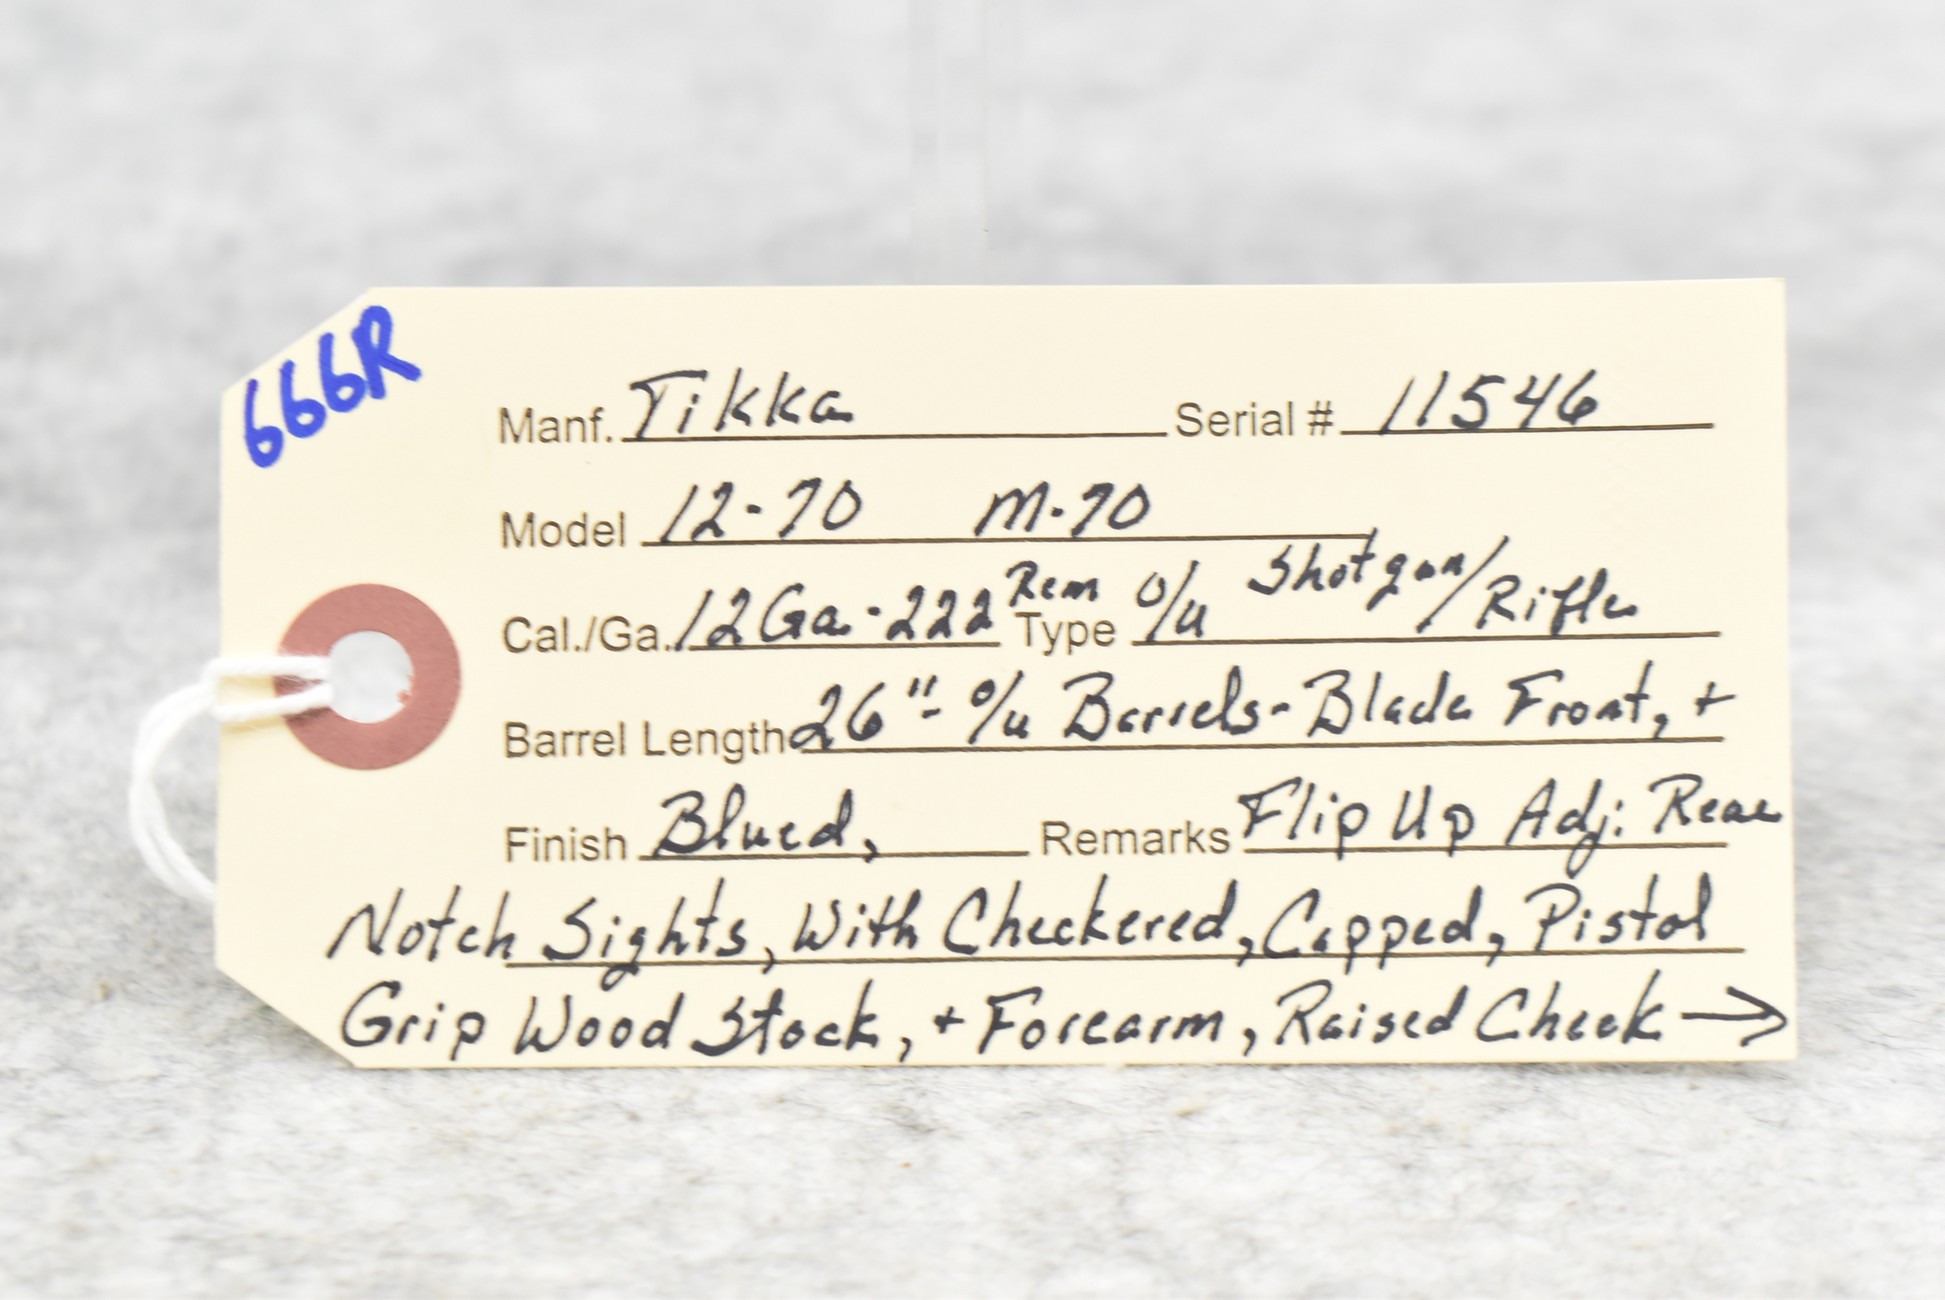 666R
Manf. Tikka Serial # 11546
Model 12-70 M-70
Cal./Ga. 12Ga.-222 Rem Type O/U Shotgun/Rifle
Barrel Length 26"- O/U Barrels- Blade Front, +
Finish Blued, Remarks Flip Up Adj. Rear
Notch Sights, With Checkered, Capped, Pistol
Grip Wood Stock, + Forearm, Raised Cheek →